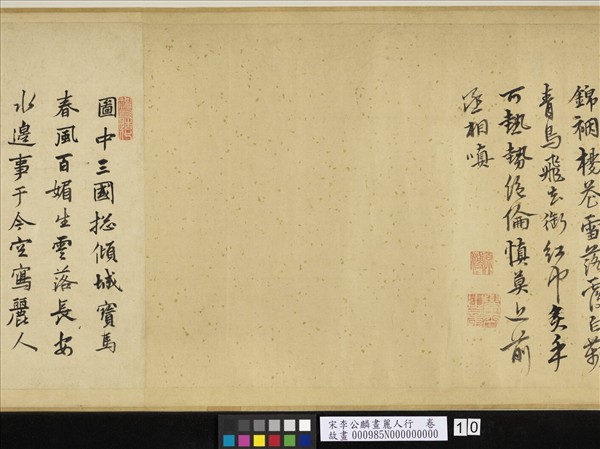 錦裀楊花雪落覆白蘋
青鳥飛去銜紅巾炙手
可熱勢絕倫慎莫近前
丞相嗔
圖中三國摠傾城寶馬
春風百媚生雲落長安
水邊事于今空寫麗人
宋李公麟畫麗人行　卷
故畫000985N000000000
10